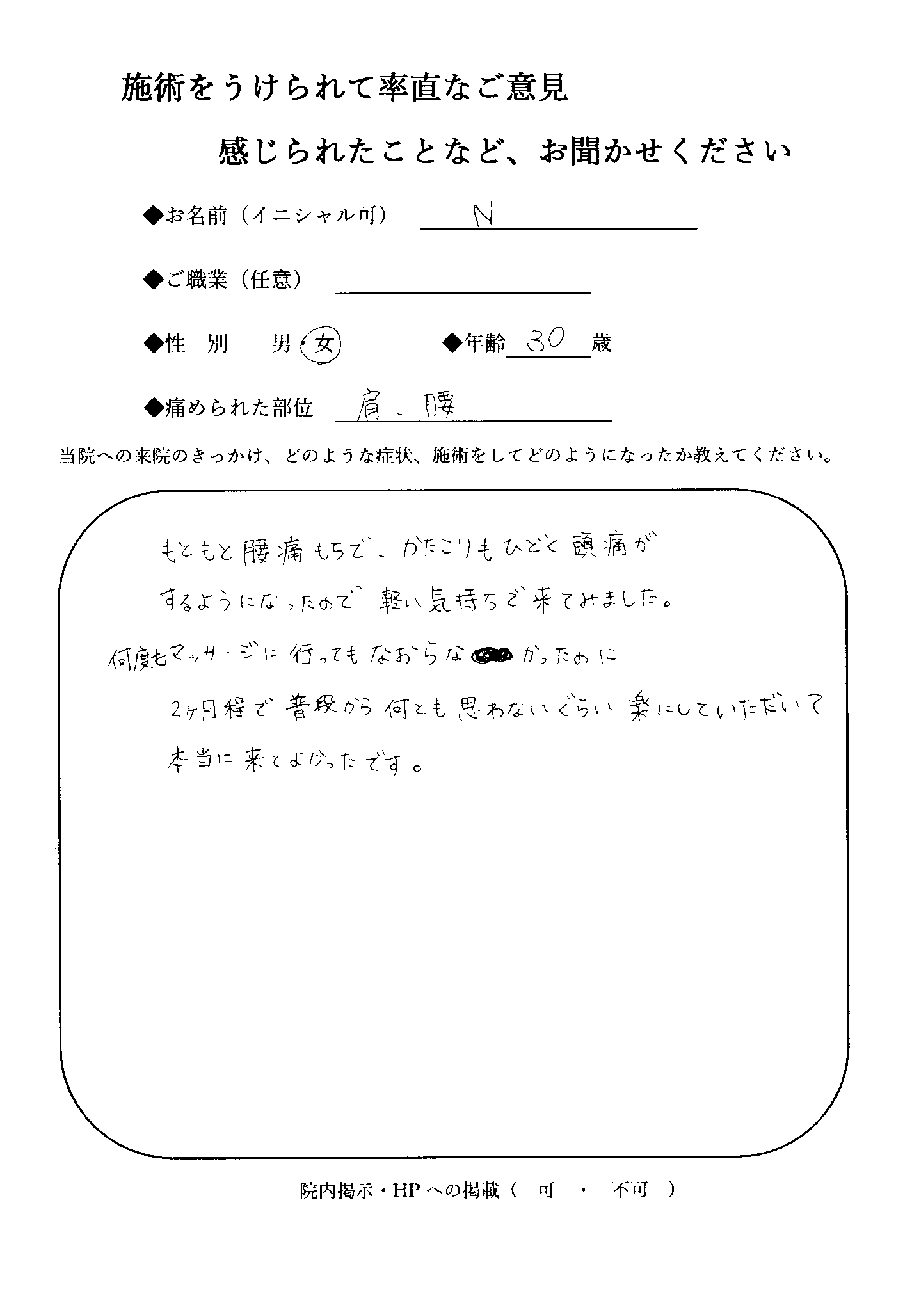 施術をうけられて率直なご意見
感じられたことなど、お聞かせください
◆お名前（イニシャル可） N
◆ご職業（任意）
◆性 別 男・女 ◆年齢 30 歳
◆痛められた部位 肩、腰
当院への来院のきっかけ、どのような症状、施術をしてどのようになったか教えてください。
もともと腰痛もちで、かたこりもひどく頭痛が
するようになったので 軽い気持ちで来てみました。
何度もマッサージに行ってもなおらなかったのに
2ヶ月程で普段から何とも思わないぐらい楽にしていただいて
本当に来てよかったです。
院内掲示・HPへの掲載（ 可 ・ 不可 ）